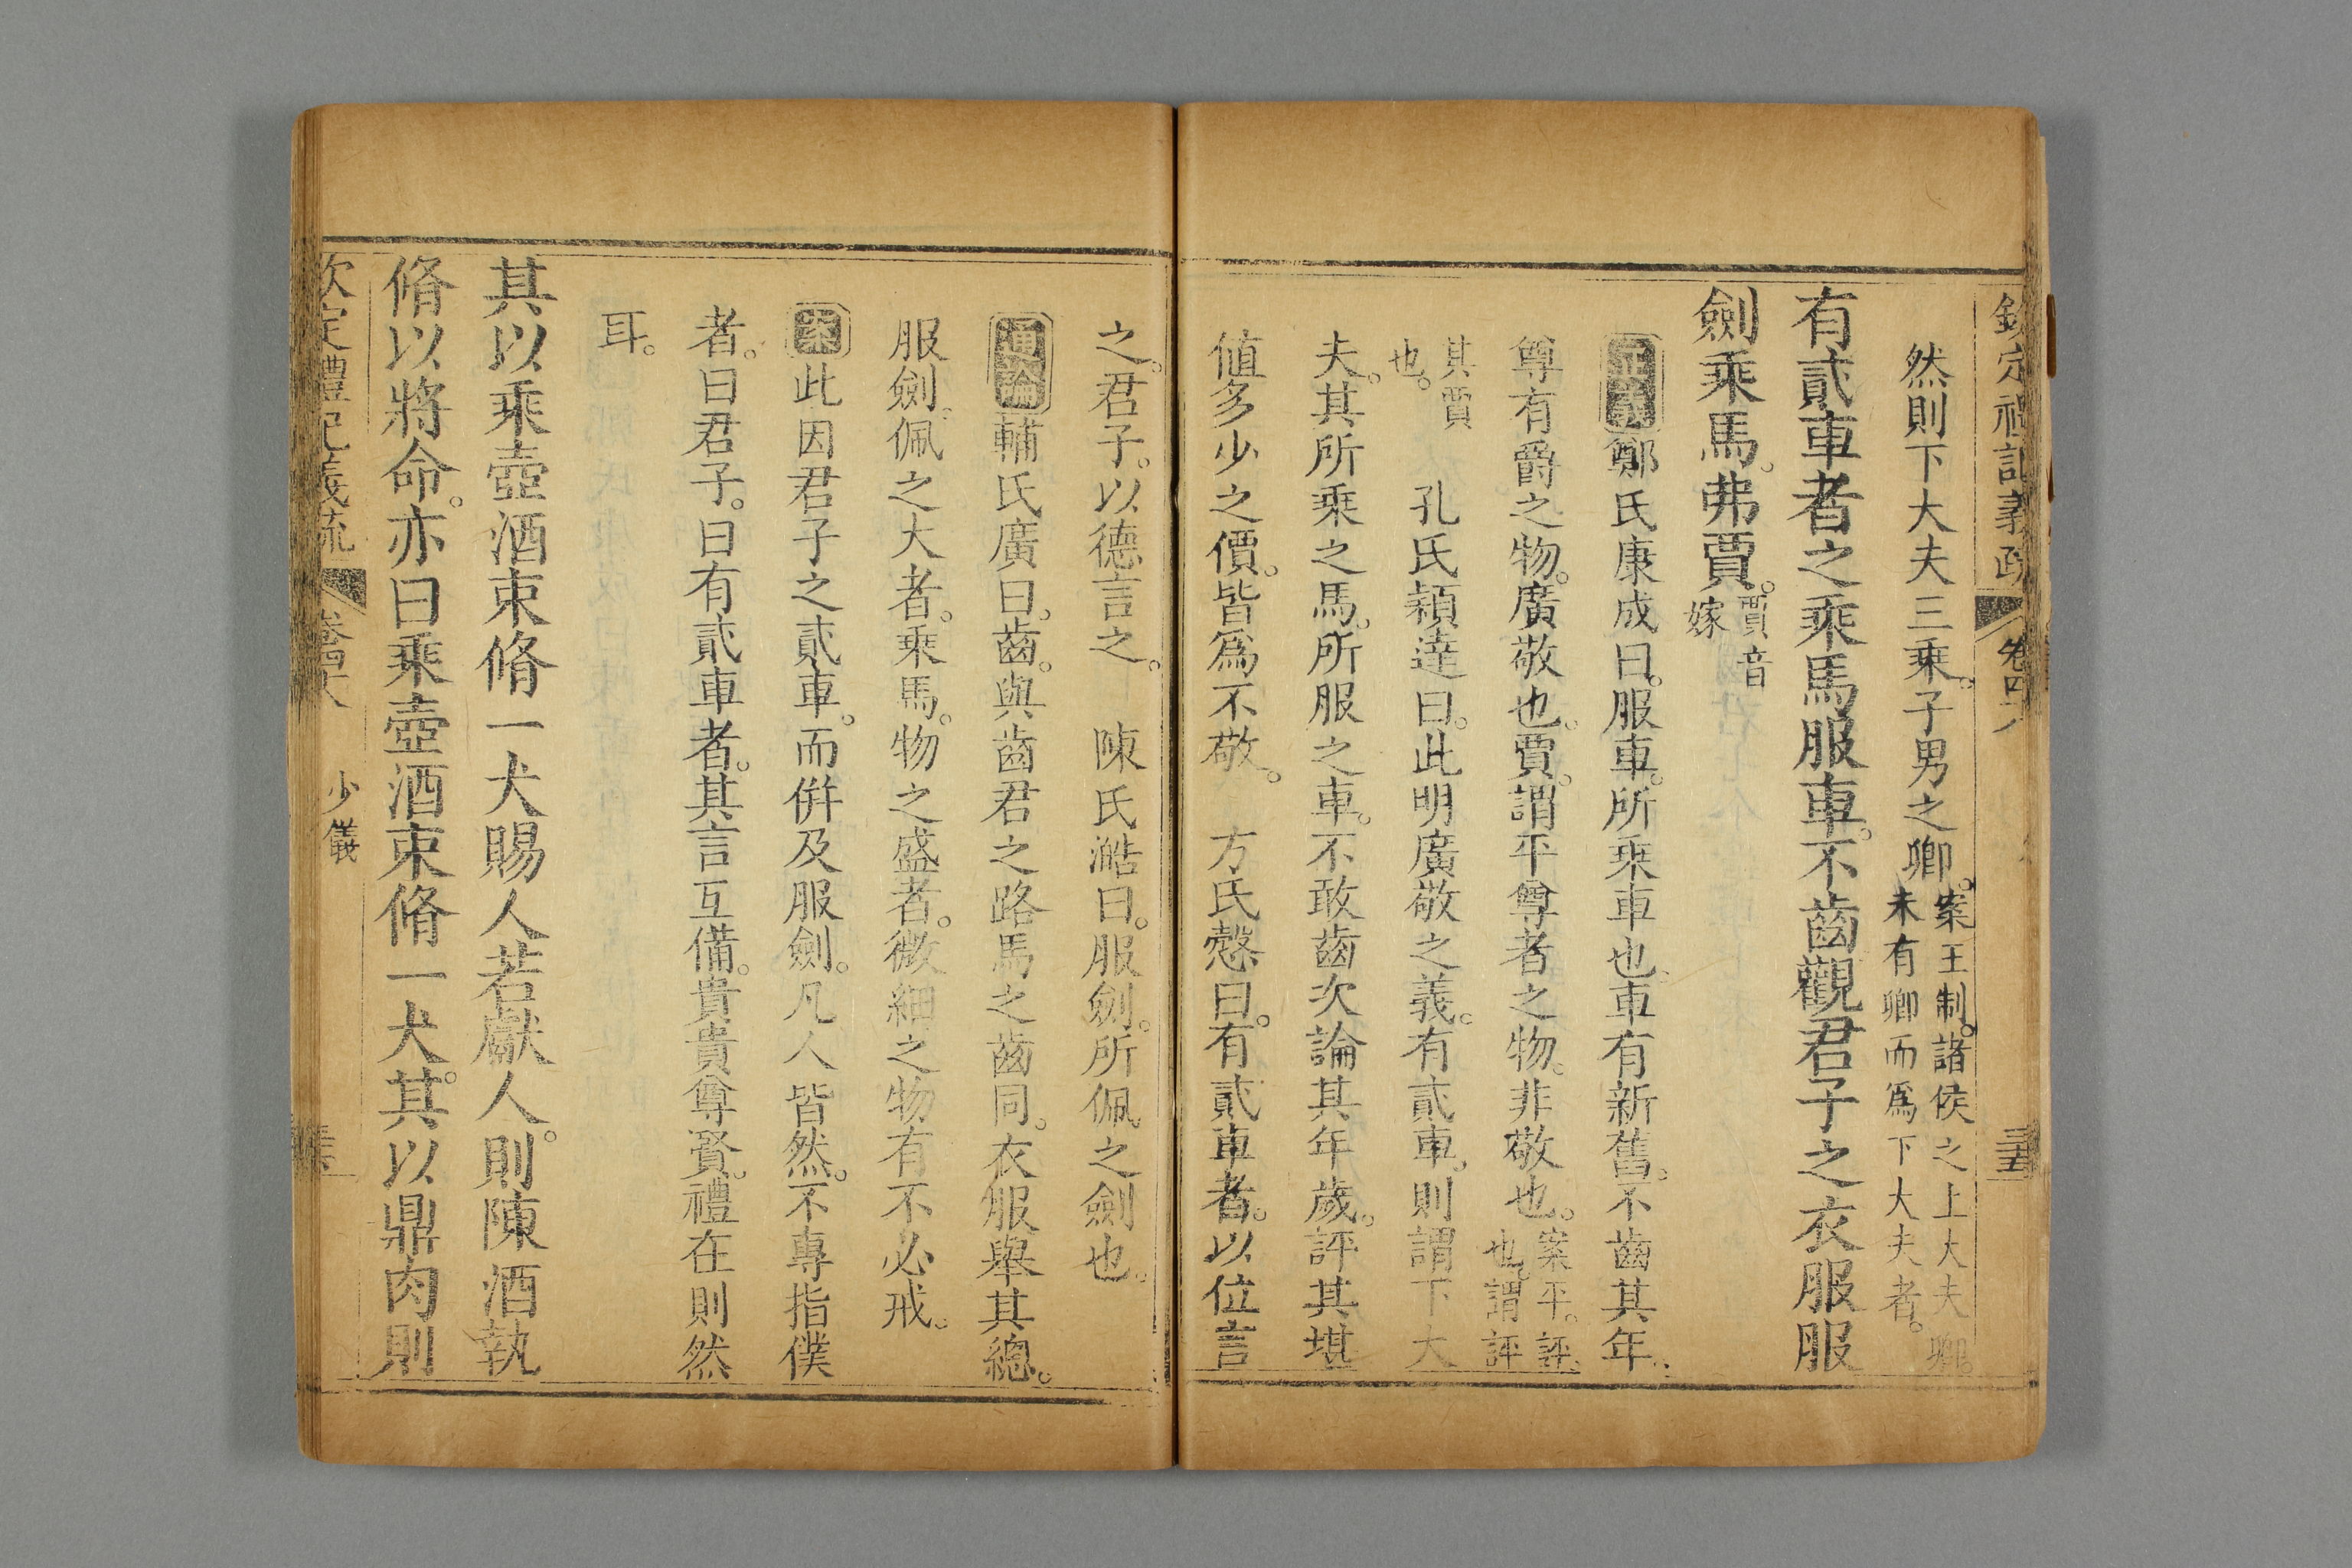 欽定禮記義疏 卷四十八 三五
然則下大夫三乘。子男之卿。案王制。諸侯之上大夫卿。未有卿而爲下大夫者。
有貳車者之乘馬服車。不齒觀君子之衣服服
劍乘馬。弗賈。賈音嫁
正義鄭氏康成曰。服車。所乘車也。車有新舊。不齒其年。
尊有爵之物。廣敬也。賈。謂平尊者之物。非敬也。案平。評也。謂評
其賈也。 孔氏穎達曰。此明廣敬之義。有貳車。則謂下大
夫。其所乘之馬。所服之車。不敢齒次論其年歲。評其堪
値多少之價。皆爲不敬。 方氏慤曰。有貳車者。以位言
之。君子。以德言之。 陳氏澔曰。服劍。所佩之劍也。
通論輔氏廣曰。齒。與齒君之路馬之齒同。衣服舉其總。
服劍。佩之大者。乘馬。物之盛者。微細之物有不必戒。
案此因君子之貳車。而併及服劍。凡人皆然。不專指僕
者。曰君子。曰有貳車者。其言互備。貴貴尊賢。禮在則然
耳。
其以乘壺酒束脩一犬賜人若獻人。則陳酒執
脩以將命。亦曰乘壺酒束脩一犬。其以鼎肉則
欽定禮記義疏 卷四十八 少儀